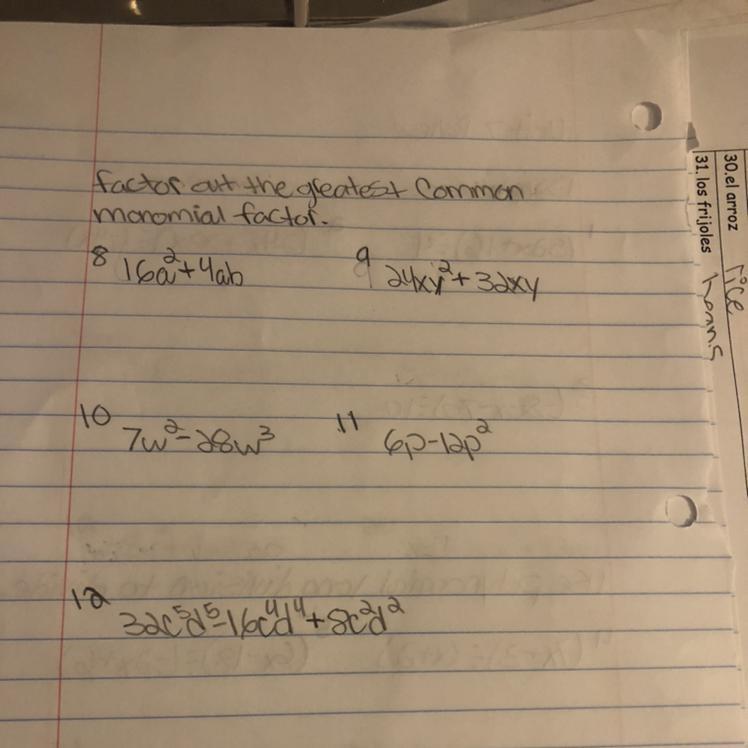 factor out the greatest common
monomial factor.
8 16a²+4ab
9 24xy²+32xy
10 7w²-28w³
11 6p-12p²
12 32c⁵d⁵-16c⁴d⁴+8c²d²
30. el arroz rice
31. los frijoles beans